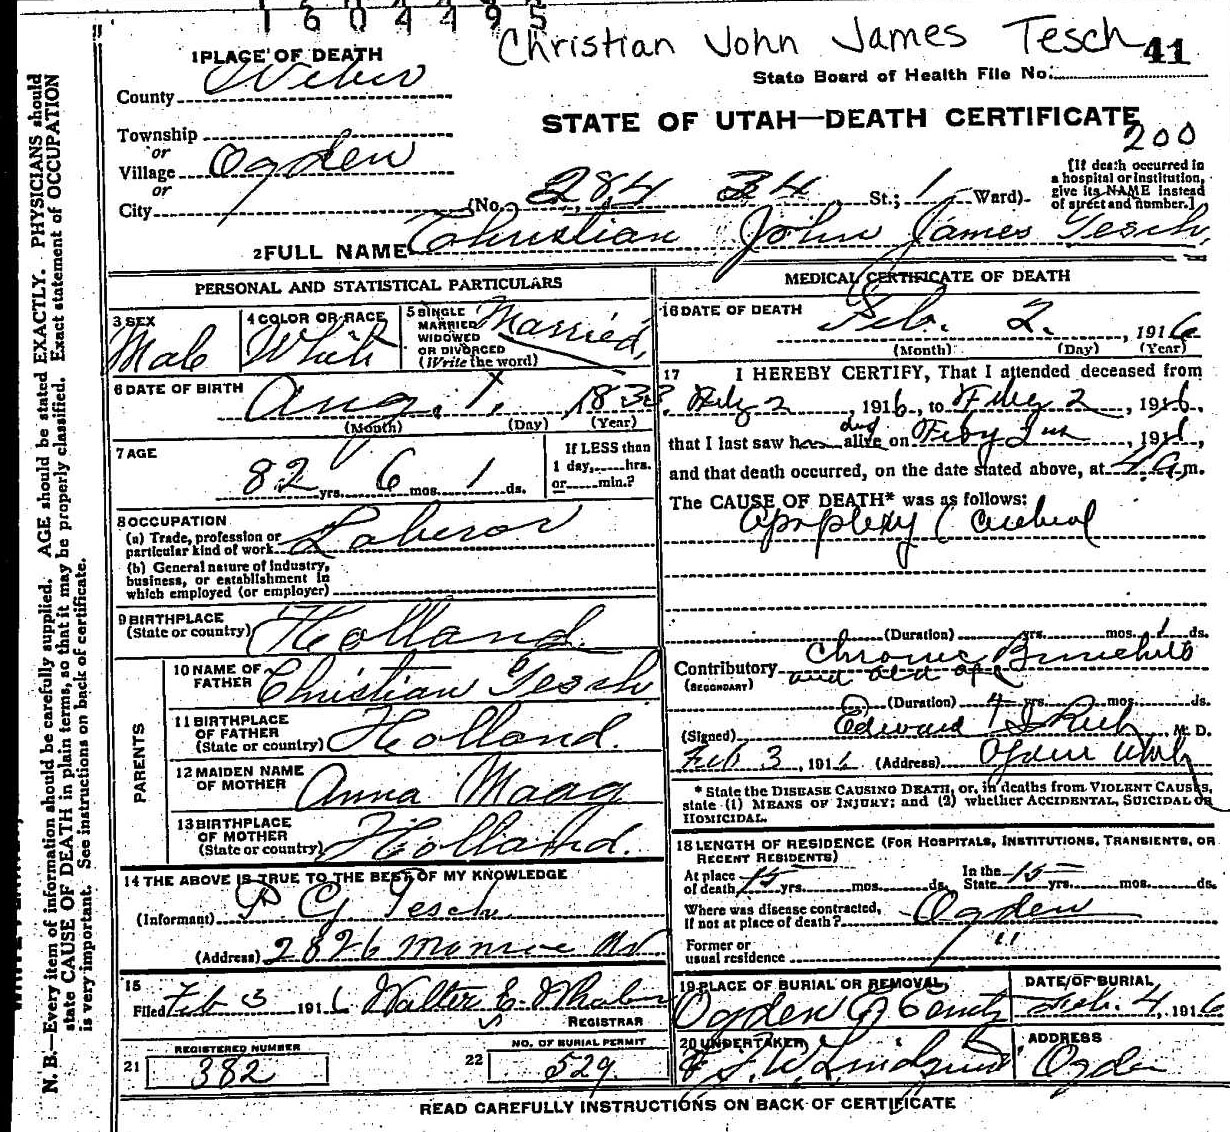 1 6 0 4 4 9 5
Christian John James Tesch 41
1 PLACE OF DEATH
State Board of Health File No.
County Weber
STATE OF UTAH—DEATH CERTIFICATE
200
Township
or
Village Ogden
or
City
(No. 284 34 St.; 1 Ward)
[If death occurred in
a hospital or institution,
give its NAME instead
of street and number.]
2 FULL NAME Christian John James Tesch
PERSONAL AND STATISTICAL PARTICULARS
3 SEX Male
4 COLOR OR RACE White
5 SINGLE
MARRIED
WIDOWED
OR DIVORCED
(Write the word)
Married
6 DATE OF BIRTH
Aug. 1, 1833
(Month) (Day) (Year)
7 AGE
82 yrs. 6 mos. 1 ds.
If LESS than
1 day,......hrs.
or......min.?
8 OCCUPATION
(a) Trade, profession or
particular kind of work Laberor
(b) General nature of industry,
business, or establishment in
which employed (or employer)
9 BIRTHPLACE
(State or country) Holland
PARENTS
10 NAME OF
FATHER Christian Tesch
11 BIRTHPLACE
OF FATHER
(State or country) Holland.
12 MAIDEN NAME
OF MOTHER Anna Maag
13 BIRTHPLACE
OF MOTHER
(State or country) Holland.
14 THE ABOVE IS TRUE TO THE BEST OF MY KNOWLEDGE
(Informant) P G Tesch
(Address) 2826 Monroe Av
15
Filed Feb 3 1916 Walter E.
REGISTRAR
REGISTERED NUMBER
21 382
NO. OF BURIAL PERMIT
22 529
MEDICAL CERTIFICATE OF DEATH
16 DATE OF DEATH
Feb. 2. , 1916
(Month) (Day) (Year)
17 I HEREBY CERTIFY, That I attended deceased from
Feby 2 , 1916, to Feby 2 , 1916,
that I last saw h alive on Feby 2 , 191 ,
and that death occurred, on the date stated above, at 4 a m.
The CAUSE OF DEATH* was as follows:
Apoplexy (Cerebral
(Duration) yrs. mos. 1 ds.
Contributory Chronic Bronchitis
(SECONDARY) and old age
(Duration) 4 yrs. mos. ds.
(Signed) Edward I Rich M. D.
Feb 3, 1916 (Address) Ogden Utah
* State the DISEASE CAUSING DEATH, or, in deaths from VIOLENT CAUSES,
state (1) MEANS OF INJURY; and (2) whether ACCIDENTAL, SUICIDAL OR
HOMICIDAL.
18 LENGTH OF RESIDENCE (FOR HOSPITALS, INSTITUTIONS, TRANSIENTS, OR
RECENT RESIDENTS)
At place
of death 15 yrs. mos. ds.
In the
State 15 yrs. mos. ds.
Where was disease contracted,
If not at place of death? Ogden
Former or
usual residence "
19 PLACE OF BURIAL OR REMOVAL
Ogden Cy Cemty
DATE OF BURIAL
Feb. 4, 1916
20 UNDERTAKER
ADDRESS
Ogden
READ CAREFULLY INSTRUCTIONS ON BACK OF CERTIFICATE
N. B.—Every item of information should be carefully supplied. AGE should be stated EXACTLY. PHYSICIANS should
state CAUSE OF DEATH in plain terms, so that it may be properly classified. Exact statement of OCCUPATION
is very important. See instructions on back of certificate.